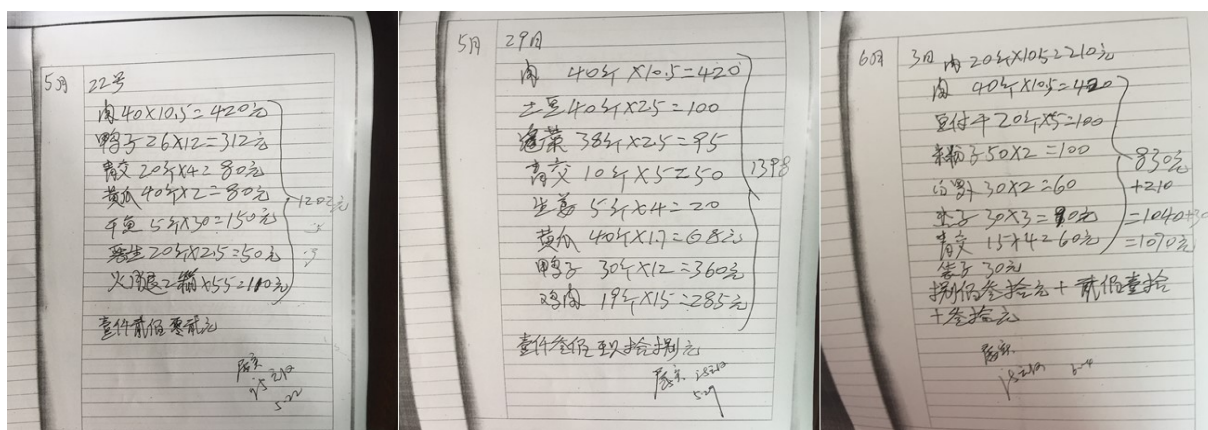 5月 22号
肉40×10.5=420元
鸭子26×12=312元
青交20斤×4=80元
黄瓜40斤×2=80元
干鱼5斤×30=150元
生20斤×2.5=50元
火腿2箱×55=110元
1202元
壹仟贰佰零贰元
5-22
5月 29日
肉 40斤×10.5=420
土豆40斤×2.5=100
菜38斤×2.5=95
青交10斤×5=50
生姜5斤×4=20
黄瓜40斤×1.7=68元
鸭子30斤×12=360元
鸡肉19斤×15=285元
1398
壹仟叁佰玖拾捌元
5.29
6月 3日 肉20斤×10.5=210元
肉 40斤×10.5=420
豆付干20斤×5=100
米粉子50×2=100
30×2=60
30×3=90元
青交15×4=60元
袋子30元
830元
+210
=1040+30
=1070元
捌佰叁拾元+贰佰壹拾
+叁拾元
6-4